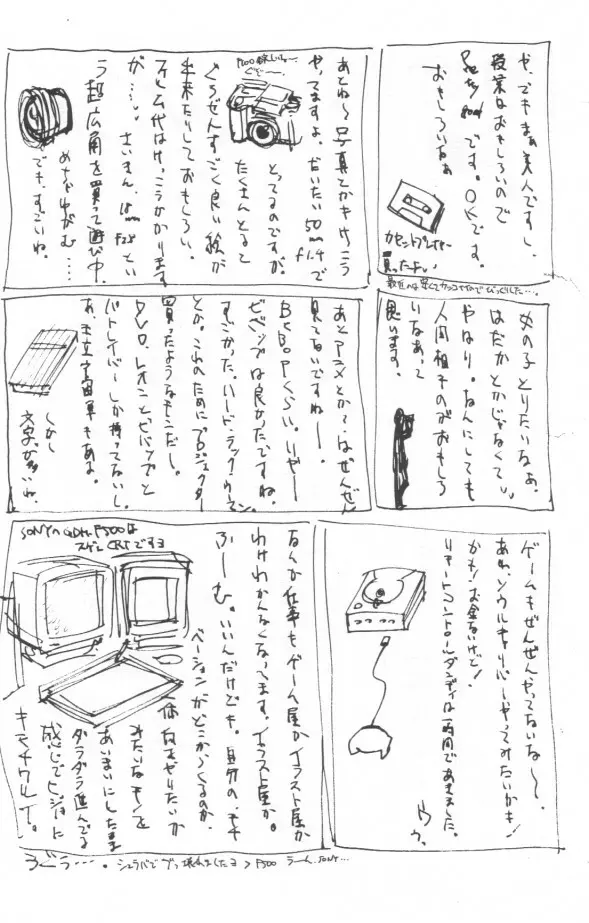 や、でもまぁ美人ですし、
授業はおもしろいので
です。OKです。
おもしろいなぁ
カセットプレイヤー
買ったよい
最近のは安くてカッコイイのでびっくりした…。
あとね〜写真とかもけっこう
やってますよ。だいたい50mm f1.4で
とってるのですが、
たくさんとると
ぐうぜんすごく良い絵が
出来たりしておもしろい。
フィルム代はけっこうかかります
が……。さいきん、18mm F2.8とい
う超広角を買って遊び中。
めちゃゆがむ……
でも、すごいね。
女の子とりたいなぁ。
はだかとかじゃなくて。
やはり。なんにしても
人間相手のがおもしろ
いなあって
思います。
あとアニメとか?はぜんぜん
見てないですねー。
BeBoPくらい。いやー
ビバップは良かったですね。
すごかった。ハード・ラック・ウーマン
とか。これのためにプロジェクター
買ったようなモンだし。
LD、レオンとビバップと
パトレイバーしか持ってないし。
あ、王立宇宙軍もあるよ。
しかし
文字が多いね。
ゲームもぜんぜんやってないな〜。
あ、ソウルキャリバーやってみたいかも!
かも!お金ないけど!
リモートコントロールダンディは一時間であきました。
ウゥ、
SONYのGDM-F500は
スゲェCRTですヨ
なんか仕事もゲーム屋かイラスト屋か
わけわかんなくなってます。イラスト屋か。
ふーむ。いいんだけども。自分の、モチ
ベーションがどこからくるのか、
何をやりたいか
みたいなモノを
あいまいにしたまま
ダラダラ進んでる
感じでヒジョーに
キモチワルイ。
うぐぅ…。
シュラバでブッ壊れましたヨ>F500 うーん、SONY…